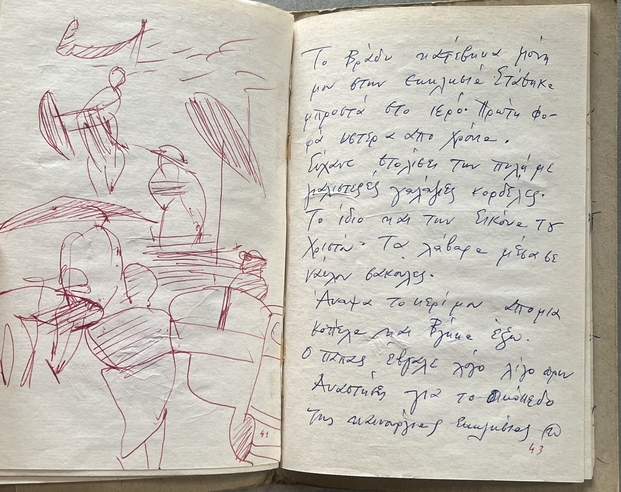 41
Το βράδυ κατέβηκα μόνη
μου στην εκκλησιά Στάθηκα
μπροστά στο ιερό. Πρώτη φο-
ρά υστερα απο χρόνια.
Είχανε στολίσει την πύλη με
γαλάζιες κορδέλες.
Το ίδιο και την Εικόνα Του
Χριστού. Τα λάβαρα μέσα σε
νάϋλον σακούλες.
Άναψα το κερί μου απο μια
κοπέλα και βγήκα έξω.
Ο παπάς έβγαλε λόγο λίγο πριν
Αναστήσει για το οικόπεδο
της καινούργιας εκκλησίας
43